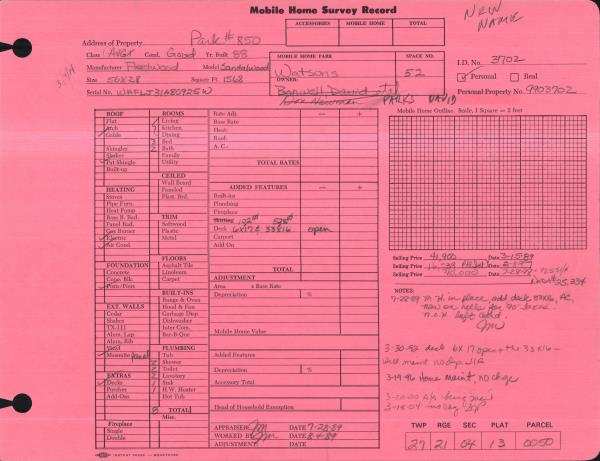 Mobile Home Survey Record
NEW NAME
ACCESSORIES MOBILE HOME TOTAL
Address of Property Park # R50
Class AVG+ Cond. Good Yr. Built 88
Manufacturer Fleetwood Model Sandalwood
Size 56x28 Square Ft. 1568
Serial No.
MOBILE HOME PARK SPACE NO.
Watsons 52
OWNER:
Barwell David
PARKS DAVID
I.D. No. 3702
Personal Real
Personal Property No. 9903702
ROOF
Flat
Arch
Gable
Shingles
Shakes
Pat Shingle
Built-up
HEATING
Stoves
Pipe Furn.
Heat Pump
Base B. Rad.
Panel Rad.
Gas Burner
Electric
Air Cond.
FOUNDATION
Concrete
Conc. Blk.
Posts/Piers
EXT. WALLS
Cedar
Shakes
TX-111
Alum. Lap
Alum. Rib
Vinyl
Masonite panel
EXTRAS
Decks
Porches
Add-Ons
Fireplace
Single
Double
ROOMS
Living
Kitchen
Dining
3 Bed
2 Bath
Family
Utility
CEILED
Wall Board
Paneled
Plast. Brd.
TRIM
Softwood
Plastic
Metal
FLOORS
Asphalt Tile
Linoleum
Carpet
BUILT-INS
Range & Oven
Hood & Fan
Garbage Disp.
Dishwasher
Inter Com.
Bar-B-Que
PLUMBING
Tub
2 Shower
2 Toilet
2 Lavatory
1 Sink
1 H.W. Heater
Hot Tub
8 TOTAL
Misc.
Rate Adj. — +
Base Rate
Heat:
Roof:
A. C.:
TOTAL RATES
ADDED FEATURES — +
Built-ins
Plumbing
Fireplace
Deck 6x17 33x16 open
Carport
Add On
TOTAL
ADJUSTMENT
Area x Base Rate
Depreciation %
Mobile Home Value
Added Features
Depreciation %
Accessory Total
Head of Household Exemption
APPRAISER DATE 7-28-89
WORKED BY DATE 8-4-89
ADJUSTMENT DATE
Mobile Home Outline. Scale, 1 Square = 2 feet
Selling Price 41,900 Date 3-15-89
Selling Price Date
Selling Price 90,000 Date
NOTES:
7-28-89 M.H. in place, add deck 33x16, AC,
3-30-92 deck 6x17 open + the 33x16 -
3-19-96 Home Maint, no chge
TWP RGE SEC PLAT PARCEL
27 21 04 13 0050